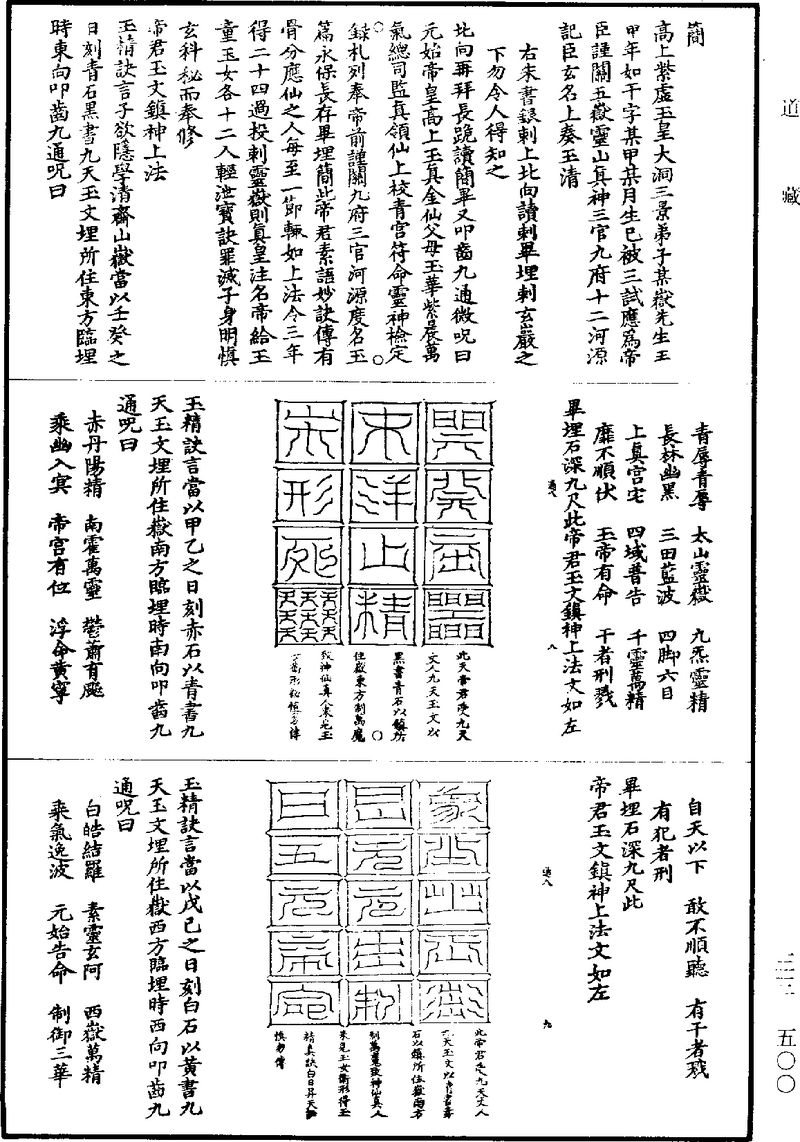 道藏
三三 五〇〇
簡
高上紫虛玉皇大洞三景弟子某嶽先生王
甲年如干字某甲某月生已被三試應爲帝
臣謹關五嶽靈山真神三官九府十二河源
記臣玄名上奏玉清
右朱書銀刺上北向讀刺畢埋刺玄巖之
下勿令人得知之
北向再拜長跪讀簡畢又叩齒九通微呪曰
元始帝皇高上玉真金仙父母玉華紫晨萬
氣總司監真領仙上校青宫符命靈神檢定
錄札列奉帝前謹關九府三官河源度名玉
篇永保長存畢埋簡此帝君素語妙訣傳有
骨分應仙之人每至一節輒如上法令三年
得二十四過投刺靈嶽則真皇注名帝給玉
童玉女各十二人輕泄寶訣罪滅子身明慎
玄科秘而奉修
帝君玉文鎮神上法
玉精訣言子欲隱學清齋山嶽當以壬癸之
日刻青石黑書九天玉文埋所住東方臨埋
時東向叩齒九通呪曰
青辱青辱 太山靈嶽 九炁靈精
長林幽黑 三田藍波 四脚六目
上真宫宅 四域普告 千靈萬精
靡不順伏 玉帝有命 干者刑戮
畢埋石深九尺此帝君玉文鎮神上法文如左
此天帝君受九天
丈人九天玉文以
黑書青石以鎮所
住嶽東方制萬魔
致神仙真人來見玉
玉精訣言當以甲乙之日刻赤石以青書九
天玉文埋所住嶽南方臨埋時南向叩齒九
通呪曰
赤丹陽精 南霍萬靈 鬱蕭有颷
乘幽入冥 帝宫有位 浮命黃寧
自天以下 敢不順聽 有干者戮
有犯者刑
畢埋石深九尺此
帝君玉文鎮神上法文如左
此帝君受九天丈人
九天玉文以青書赤
石以鎮所住嶽南方
制萬靈致神仙真人
來見玉女衛形得玉
精真訣白日昇天
慎勿傳
玉精訣言當以戊己之日刻白石以黃書九
天玉文埋所住嶽西方臨埋時西向叩齒九
通呪曰
白皓結羅 素靈玄阿 西嶽萬精
乘氣逸波 元始告命 制御三華